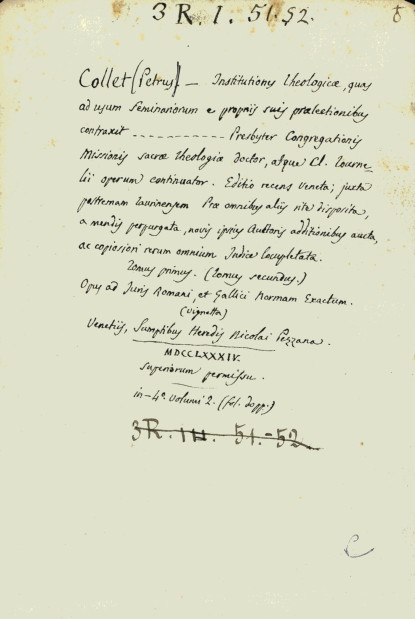 3 R. I. 51. 52.
Collet (Petrus). — Institutiones Theologicæ, quas
ad usum Seminariorum e propriis suis prælectionibus
contraxit ---------- Presbyter Congregationis
Missionis sacræ theologiæ doctor, atque Cl. Tourne-
lii operum continuator. Editio recens veneta; juxta
postremam Taurinensem Præ omnibus aliis rite disposita,
a mendis perpurgata, novis ipsius Auctoris additionibus aucta,
ac copiosiori rerum omnium Indice locupletata.
Tomus primus. (Tomus secundus.)
Opus ad Juris Romani, et Gallici Normam Exactum.
(Vignetta)
Venetiis, Sumptibus Heredis Nicolai Pezzana.
MDCCLXXXIV.
Superiorum permissu.
in-4º. Volumi 2. (fol. dopp.)
3R. III. 51.-52